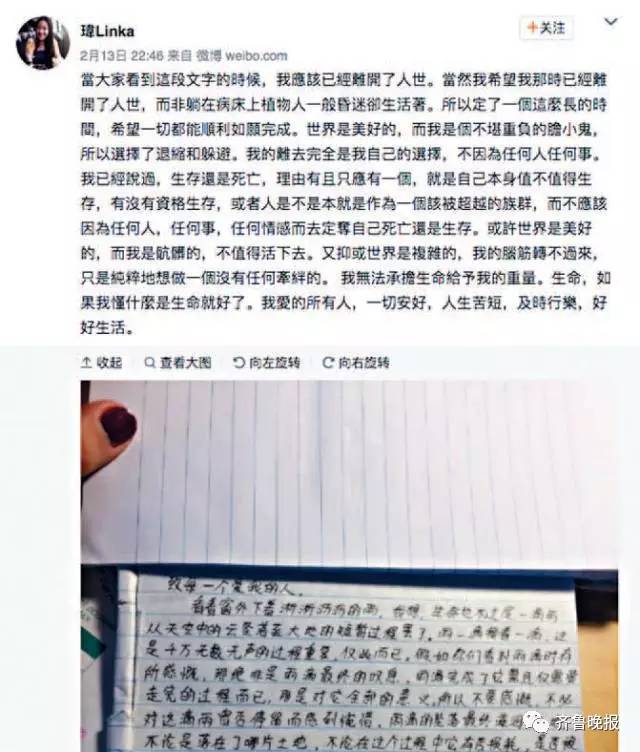 瑋Linka
+关注
2月13日 22:46 来自 微博 weibo.com
當大家看到這段文字的時候，我應該已經離開了人世。當然我希望我那時已經離
開了人世，而非躺在病床上植物人一般昏迷卻生活著。所以定了一個這麼長的時
間，希望一切都能順利如願完成。世界是美好的，而我是個不堪重負的膽小鬼，
所以選擇了退縮和躲避。我的離去完全是我自己的選擇，不因為任何人任何事。
我已經說過，生存還是死亡，理由有且只應有一個，就是自己本身值不值得生
存，有沒有資格生存，或者人是不是本就是作為一個該被超越的族群，而不應該
因為任何人，任何事，任何情感而去定奪自己死亡還是生存。或許世界是美好
的，而我是骯髒的，不值得活下去。又抑或世界是複雜的，我的腦筋轉不過來，
只是純粹地想做一個沒有任何牽絆的。 我無法承擔生命給予我的重量。生命，如
果我懂什麼是生命就好了。我愛的所有人，一切安好，人生苦短，及時行樂，好
好生活。
收起 查看大图 向左旋转 向右旋转
致每一个爱我的人，
看着窗外下着淅淅沥沥的雨，我想，生命也不过是一滴雨
从天空中的云坠落至大地的短暂过程罢了。雨一滴接着一滴，这
是千万无数无声的过程重复，仅此而已，假如你们看到雨滴时有
所感慨，那绝非是雨滴最终的叹息，雨滴完成了它
走完的过程而已，那是对它全部的意义，所以不要感谢，不必
对这滴雨曾否停留而感到惋惜，雨滴的坠落最终
不论是落在了哪片土地，不论在这个过程中它
齐鲁晚报